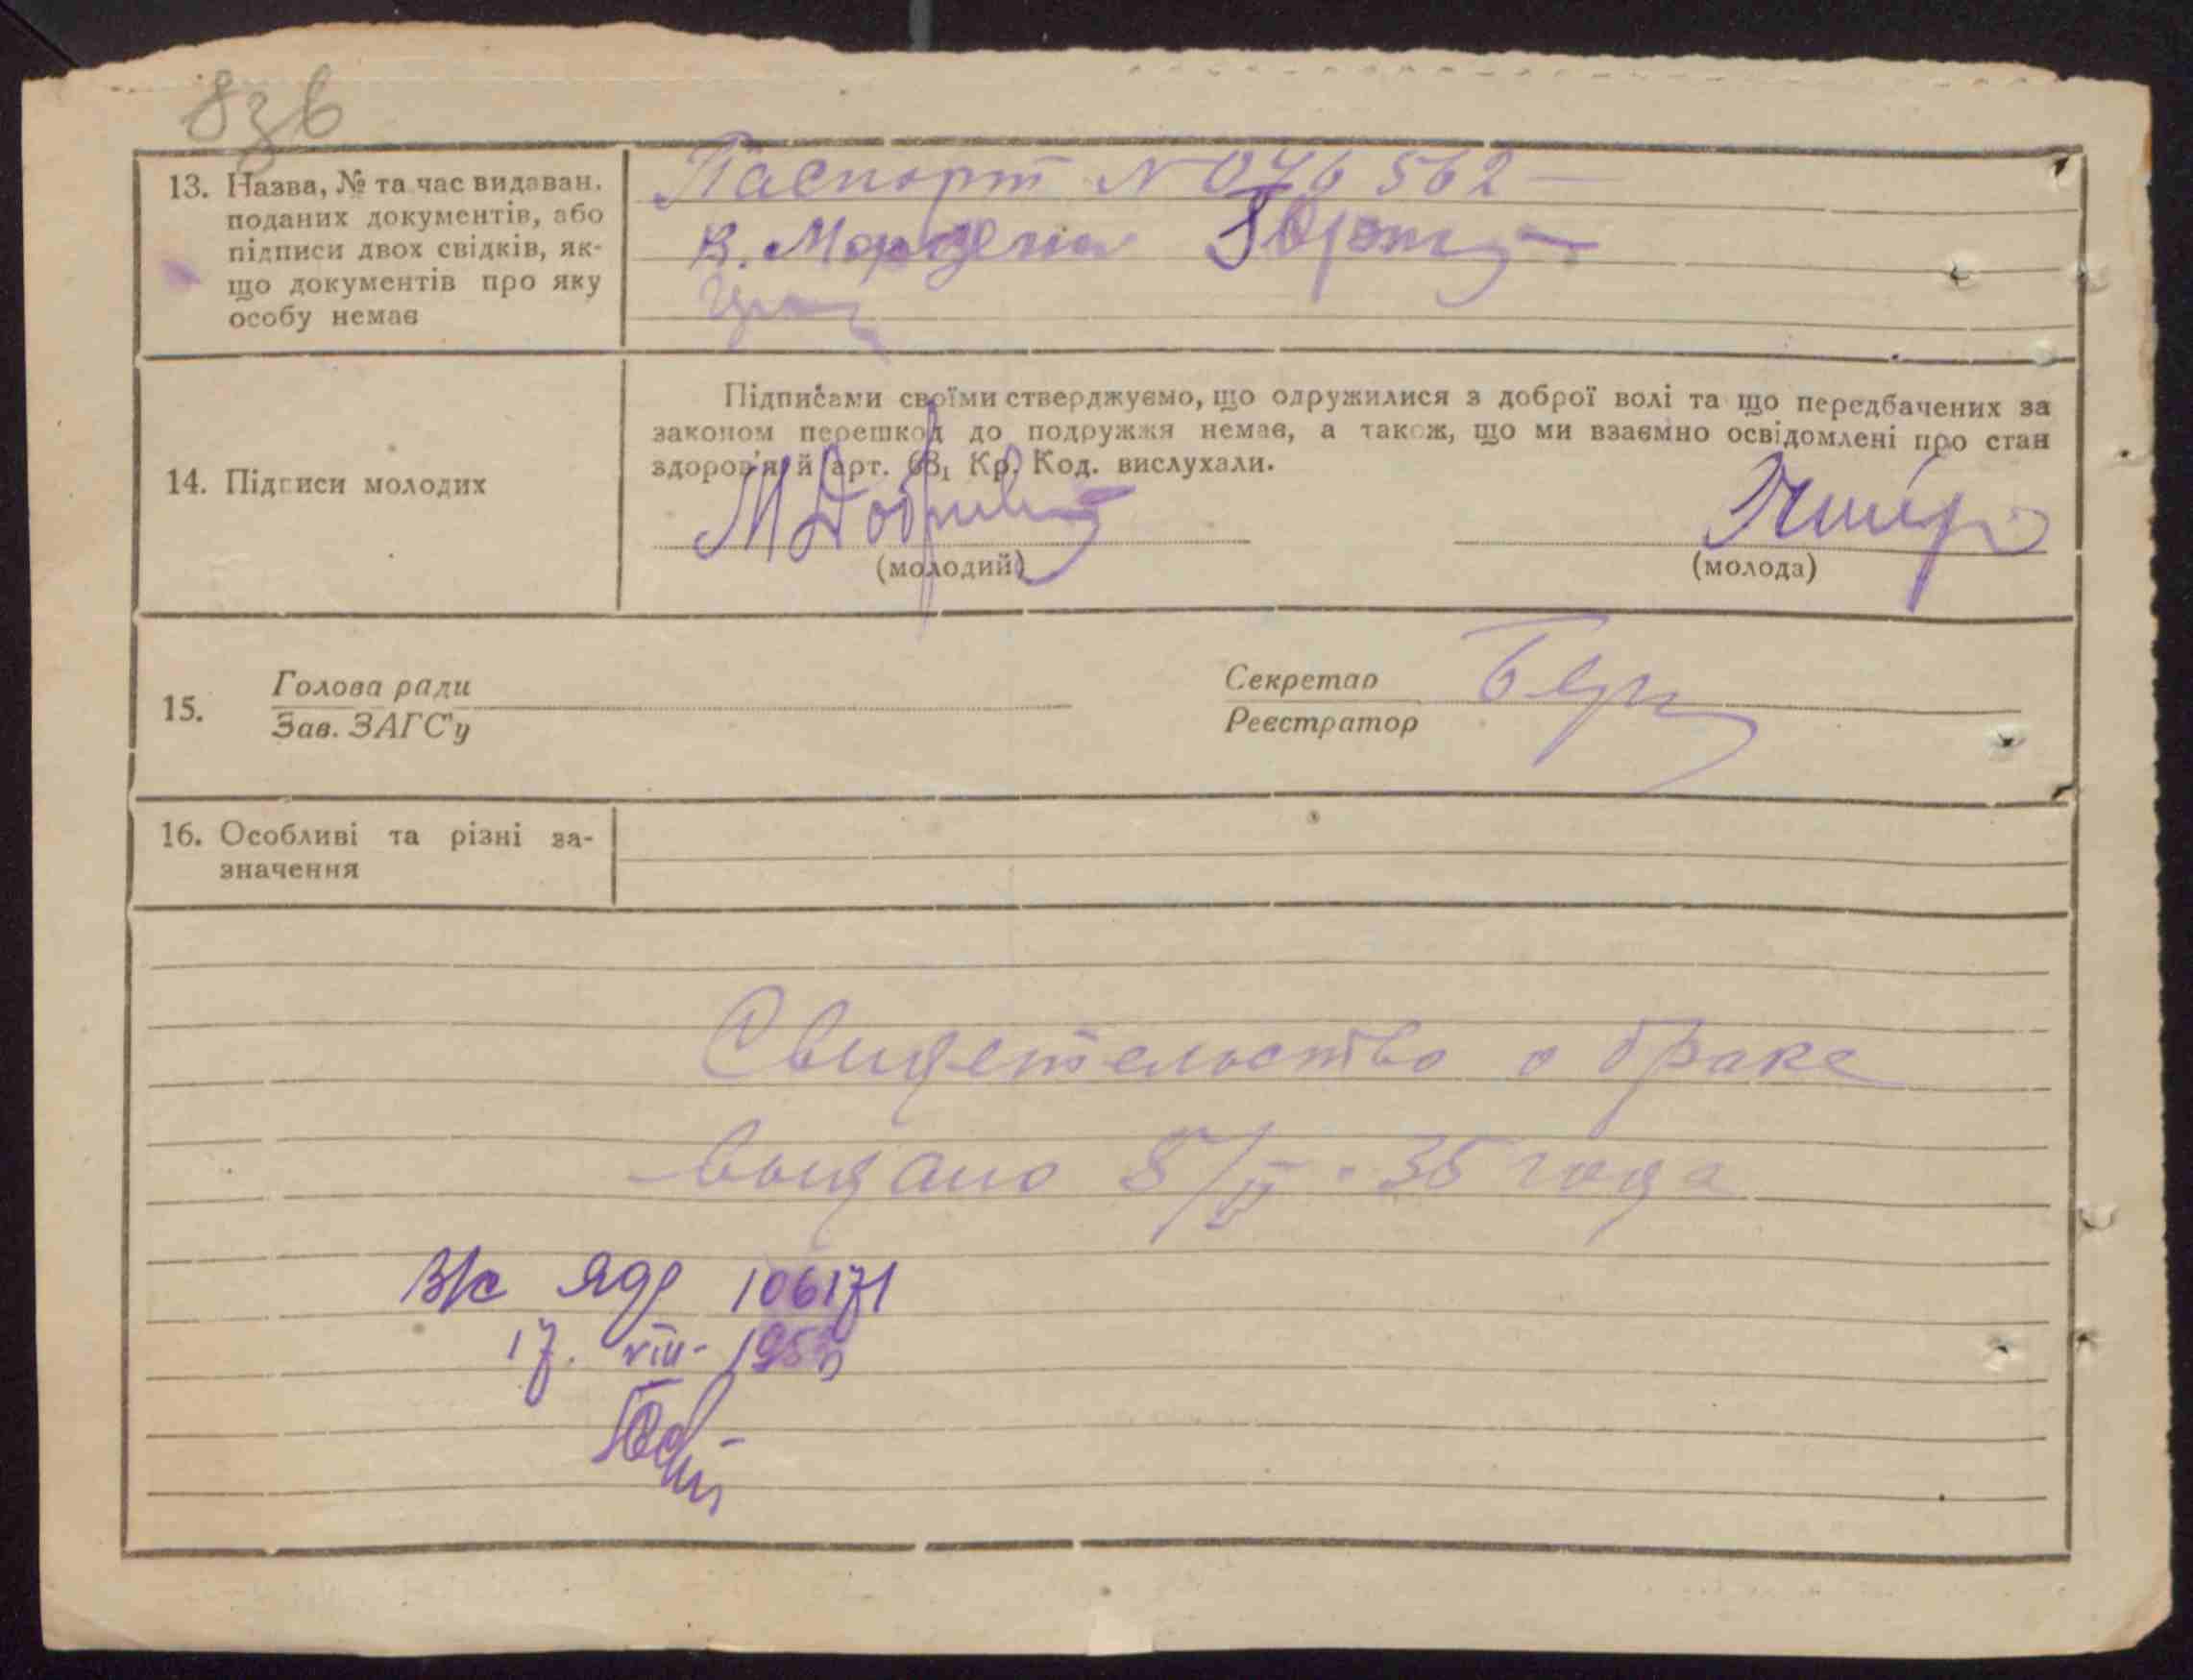 8зв
13. Назва, № та час видаван.
поданих документів, або
підписи двох свідків, як-
що документів про яку
особу немає
Паспорт N 046562 —
В.
14. Підписи молодих
Підписами своїми стверджуємо, що одружилися з доброї волі та що передбачених за
законом перешкод до подружжя немає, а також, що ми взаємно освідомлені про стан
здоров'я й арт. 68₁ Кр. Код. вислухали.
(молодий)
(молода)
15.
Голова ради
Зав. ЗАГС'у
Секретар
Реєстратор
16. Особливі та різні за-
значення
Свидетельство о браке
выдано 5/II · 35 года
106171
17. VIII - 195